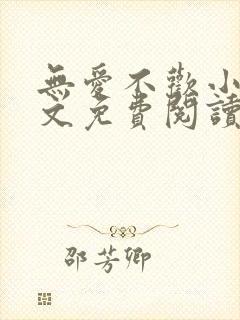 無愛不歡小
文免費閱讀
邵芳卿